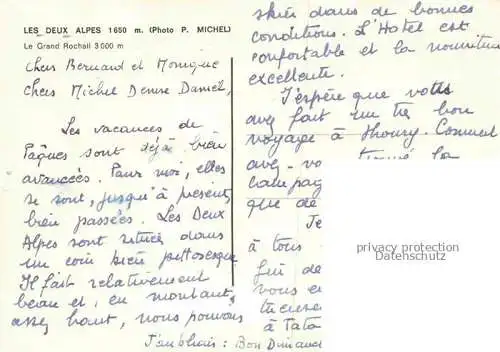 LES DEUX ALPES 1 650 m. (Photo P. MICHEL)
Le Grand Rochail 3 500 m
Chers Bernard et Monique
Chers Michel Denise Daniel,
Les vacances de
Pâques sont déjà bien
avancées. Pour moi, elles
se sont, jusqu'à présent,
bien passées. Les Deux
Alpes sont situées dans
un coin bien pittoresque
Il fait relativement
beau et, en montant
assez haut, nous pouvons
skier dans de bonnes
conditions. L'Hotel est
confortable et la nourriture
excellente.
J'espère que vous
avez fait un très bon
voyage à Thoury. Comment
avez-vo la
campag
que de
Je
à tous
fin de
vous e
à Tata
J'oubliais : Bon Dimanc
privacy protection
Datenschutz